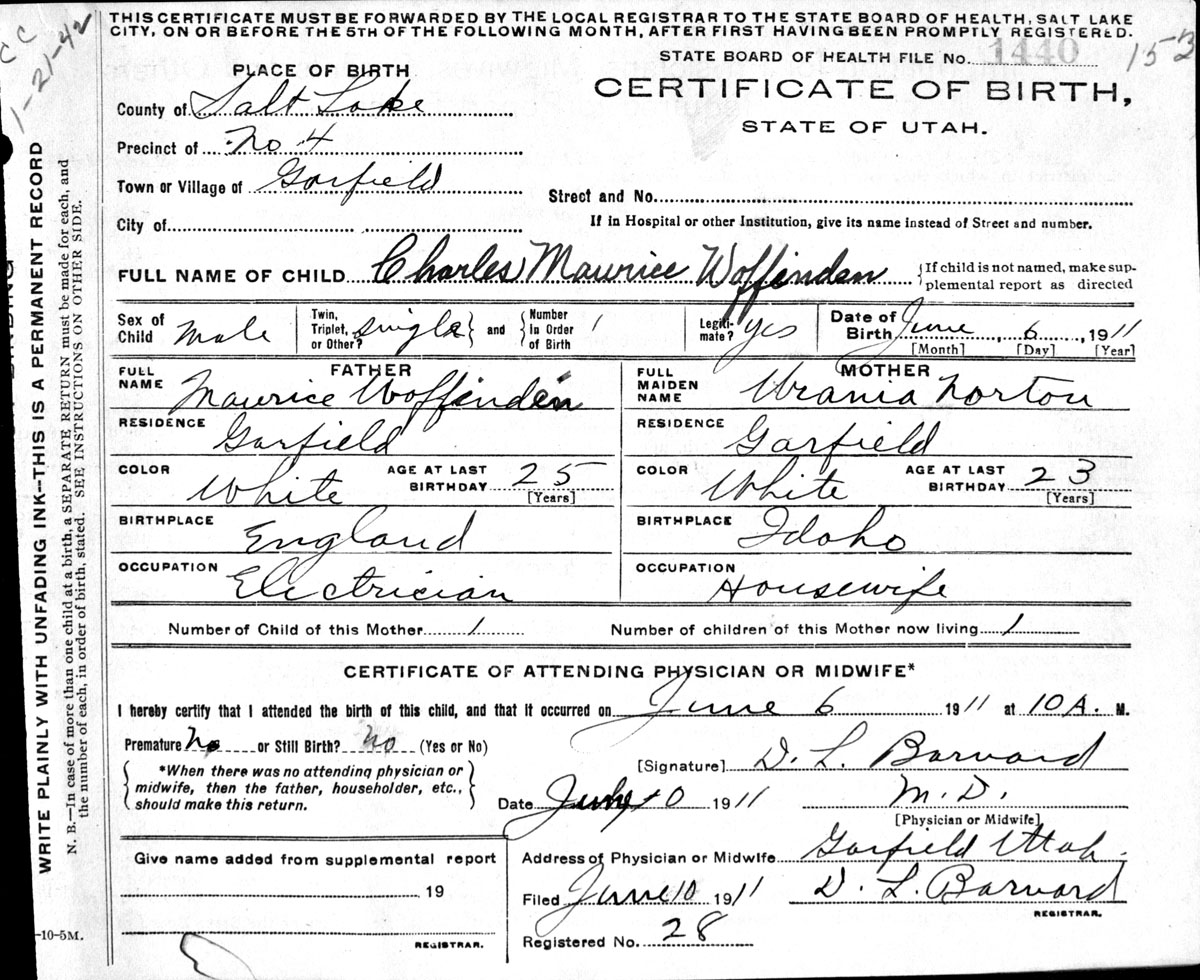 THIS CERTIFICATE MUST BE FORWARDED BY THE LOCAL REGISTRAR TO THE STATE BOARD OF HEALTH, SALT LAKE
CITY, ON OR BEFORE THE 5TH OF THE FOLLOWING MONTH, AFTER FIRST HAVING BEEN PROMPTLY REGISTERED.
CC
1-21-42
STATE BOARD OF HEALTH FILE No. 1440
153
PLACE OF BIRTH
CERTIFICATE OF BIRTH,
STATE OF UTAH.
County of Salt Lake
Precinct of No 4
Town or Village of Garfield
Street and No.
City of
If in Hospital or other Institution, give its name instead of Street and number.
FULL NAME OF CHILD Charles Maurice Woffinden {If child is not named, make sup-
plemental report as directed
Sex of Child Male Twin, Triplet, or Other? single and Number In Order of Birth 1 Legiti- mate? yes Date of Birth June 6, 1911
[Month] [Day] [Year]
FATHER MOTHER
FULL NAME Maurice Woffinden FULL MAIDEN NAME Urania Norton
RESIDENCE Garfield RESIDENCE Garfield
COLOR White AGE AT LAST BIRTHDAY 25 [Years] COLOR White AGE AT LAST BIRTHDAY 23 [Years]
BIRTHPLACE England BIRTHPLACE Idaho
OCCUPATION Electrician OCCUPATION Housewife
Number of Child of this Mother 1 Number of children of this Mother now living 1
CERTIFICATE OF ATTENDING PHYSICIAN OR MIDWIFE*
I hereby certify that I attended the birth of this child, and that it occurred on June 6 1911 at 10 A. M.
Premature No or Still Birth? No (Yes or No)
[Signature] D. L. Barnard
*When there was no attending physician or
midwife, then the father, householder, etc.,
should make this return.
Date June 10 1911 M. D.
[Physician or Midwife]
Give name added from supplemental report
19
REGISTRAR.
Address of Physician or Midwife Garfield Utah.
Filed June 10 1911 D. L. Barnard
REGISTRAR.
Registered No. 28
WRITE PLAINLY WITH UNFADING INK--THIS IS A PERMANENT RECORD
N. B.—In case of more than one child at a birth, a SEPARATE RETURN must be made for each, and
the number of each, in order of birth, stated. SEE INSTRUCTIONS ON OTHER SIDE.
-10-5M.